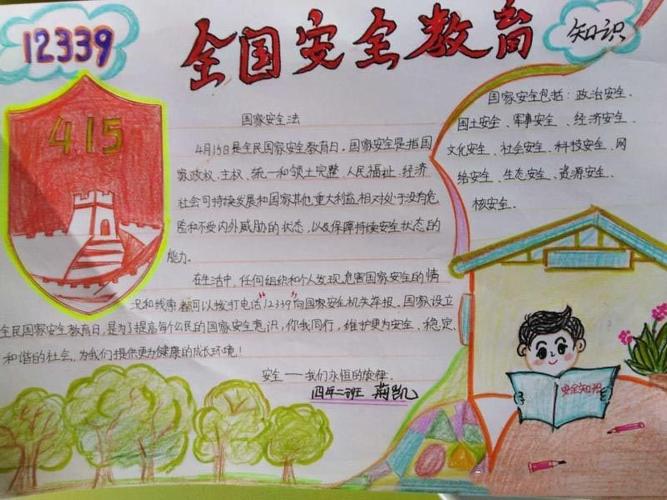 12339
全国安全教育
知识
415
国家安全法
4月15日是全民国家安全教育日。国家安全是指国
家政权、主权、统一和领土完整、人民福祉、经济
社会可持续发展和国家其他重大利益相对处于没有危
险和不受内外威胁的状态,以及保障持续安全状态的
能力。
在生活中,任何组织和个人发现危害国家安全的情
况和线索都可以拨打电话"12339"向国家安全机关举报。国家设立
全民国家安全教育日,是为了提高每个公民的国家安全意识,你我同行,维护更为安全、稳定、
和谐的社会,为我们提供更为健康的成长环境!
安全——我们永恒的旋律
四年二班
国家安全包括:政治安全、
国土安全、军事安全、经济安全、
文化安全、社会安全、科技安全、网
络安全、生态安全、资源安全、
核安全.
安全知识